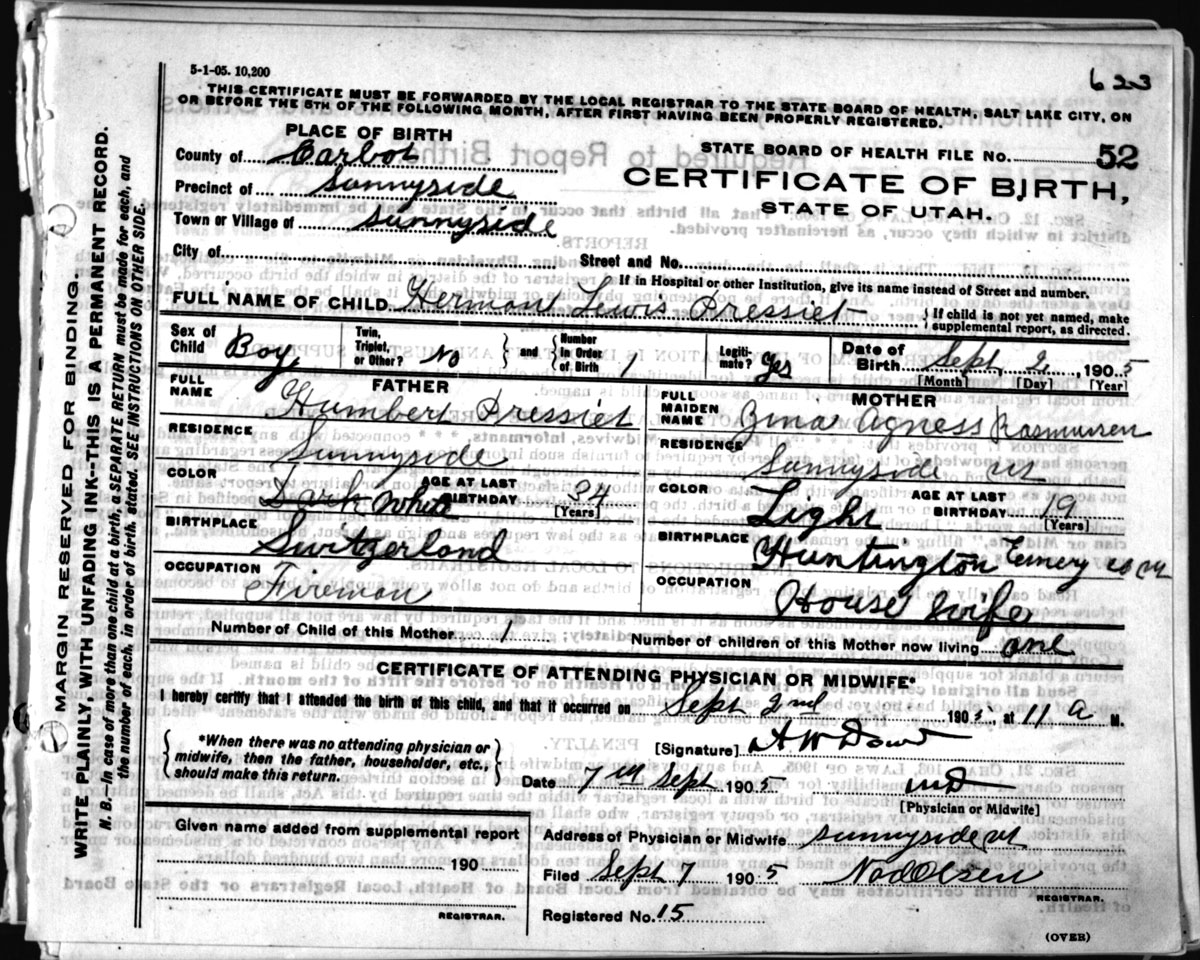 5-1-05. 10,200
623
THIS CERTIFICATE MUST BE FORWARDED BY THE LOCAL REGISTRAR TO THE STATE BOARD OF HEALTH, SALT LAKE CITY, ON
OR BEFORE THE 5TH OF THE FOLLOWING MONTH, AFTER FIRST HAVING BEEN PROPERLY REGISTERED.
PLACE OF BIRTH
County of Carbon
Precinct of Sunnyside
Town or Village of Sunnyside
City of
STATE BOARD OF HEALTH FILE NO. 52
CERTIFICATE OF BIRTH,
STATE OF UTAH.
Street and No.
If in Hospital or other Institution, give its name instead of Street and number.
FULL NAME OF CHILD Herman Lewis Pressiet
{If child is not yet named, make
supplemental report, as directed.
Sex of Child Boy
Twin, Triplet, or Other? No
{and} Number in Order of Birth 1
Legitimate? Yes
Date of Birth Sept 2, 1905
[Month] [Day] [Year]
FATHER
FULL NAME Humbert Pressiet
RESIDENCE Sunnyside
COLOR Dark White
AGE AT LAST BIRTHDAY 34
[Years]
BIRTHPLACE Switzerland
OCCUPATION Fireman
MOTHER
FULL MAIDEN NAME Zina Agness Rasmussen
RESIDENCE Sunnyside Ut
COLOR Light
AGE AT LAST BIRTHDAY 19
[Years]
BIRTHPLACE Huntington Emery co Ut
OCCUPATION House wife
Number of Child of this Mother 1
Number of children of this Mother now living one
CERTIFICATE OF ATTENDING PHYSICIAN OR MIDWIFE*
I hereby certify that I attended the birth of this child, and that it occurred on Sept 2nd 1905, at 11 a M.
{*When there was no attending physician or
midwife, then the father, householder, etc.,
should make this return.}
[Signature] A W Dowd
Date 7th Sept 1905 MD
[Physician or Midwife]
Given name added from supplemental report
190
REGISTRAR.
Address of Physician or Midwife Sunnyside Ut
Filed Sept 7 1905
REGISTRAR.
Registered No. 15
(OVER)
MARGIN RESERVED FOR BINDING.
WRITE PLAINLY, WITH UNFADING INK--THIS IS A PERMANENT RECORD.
N. B.--In case of more than one child at a birth, a SEPARATE RETURN must be made for each, and
the number of each, in order of birth, stated. SEE INSTRUCTIONS ON OTHER SIDE.